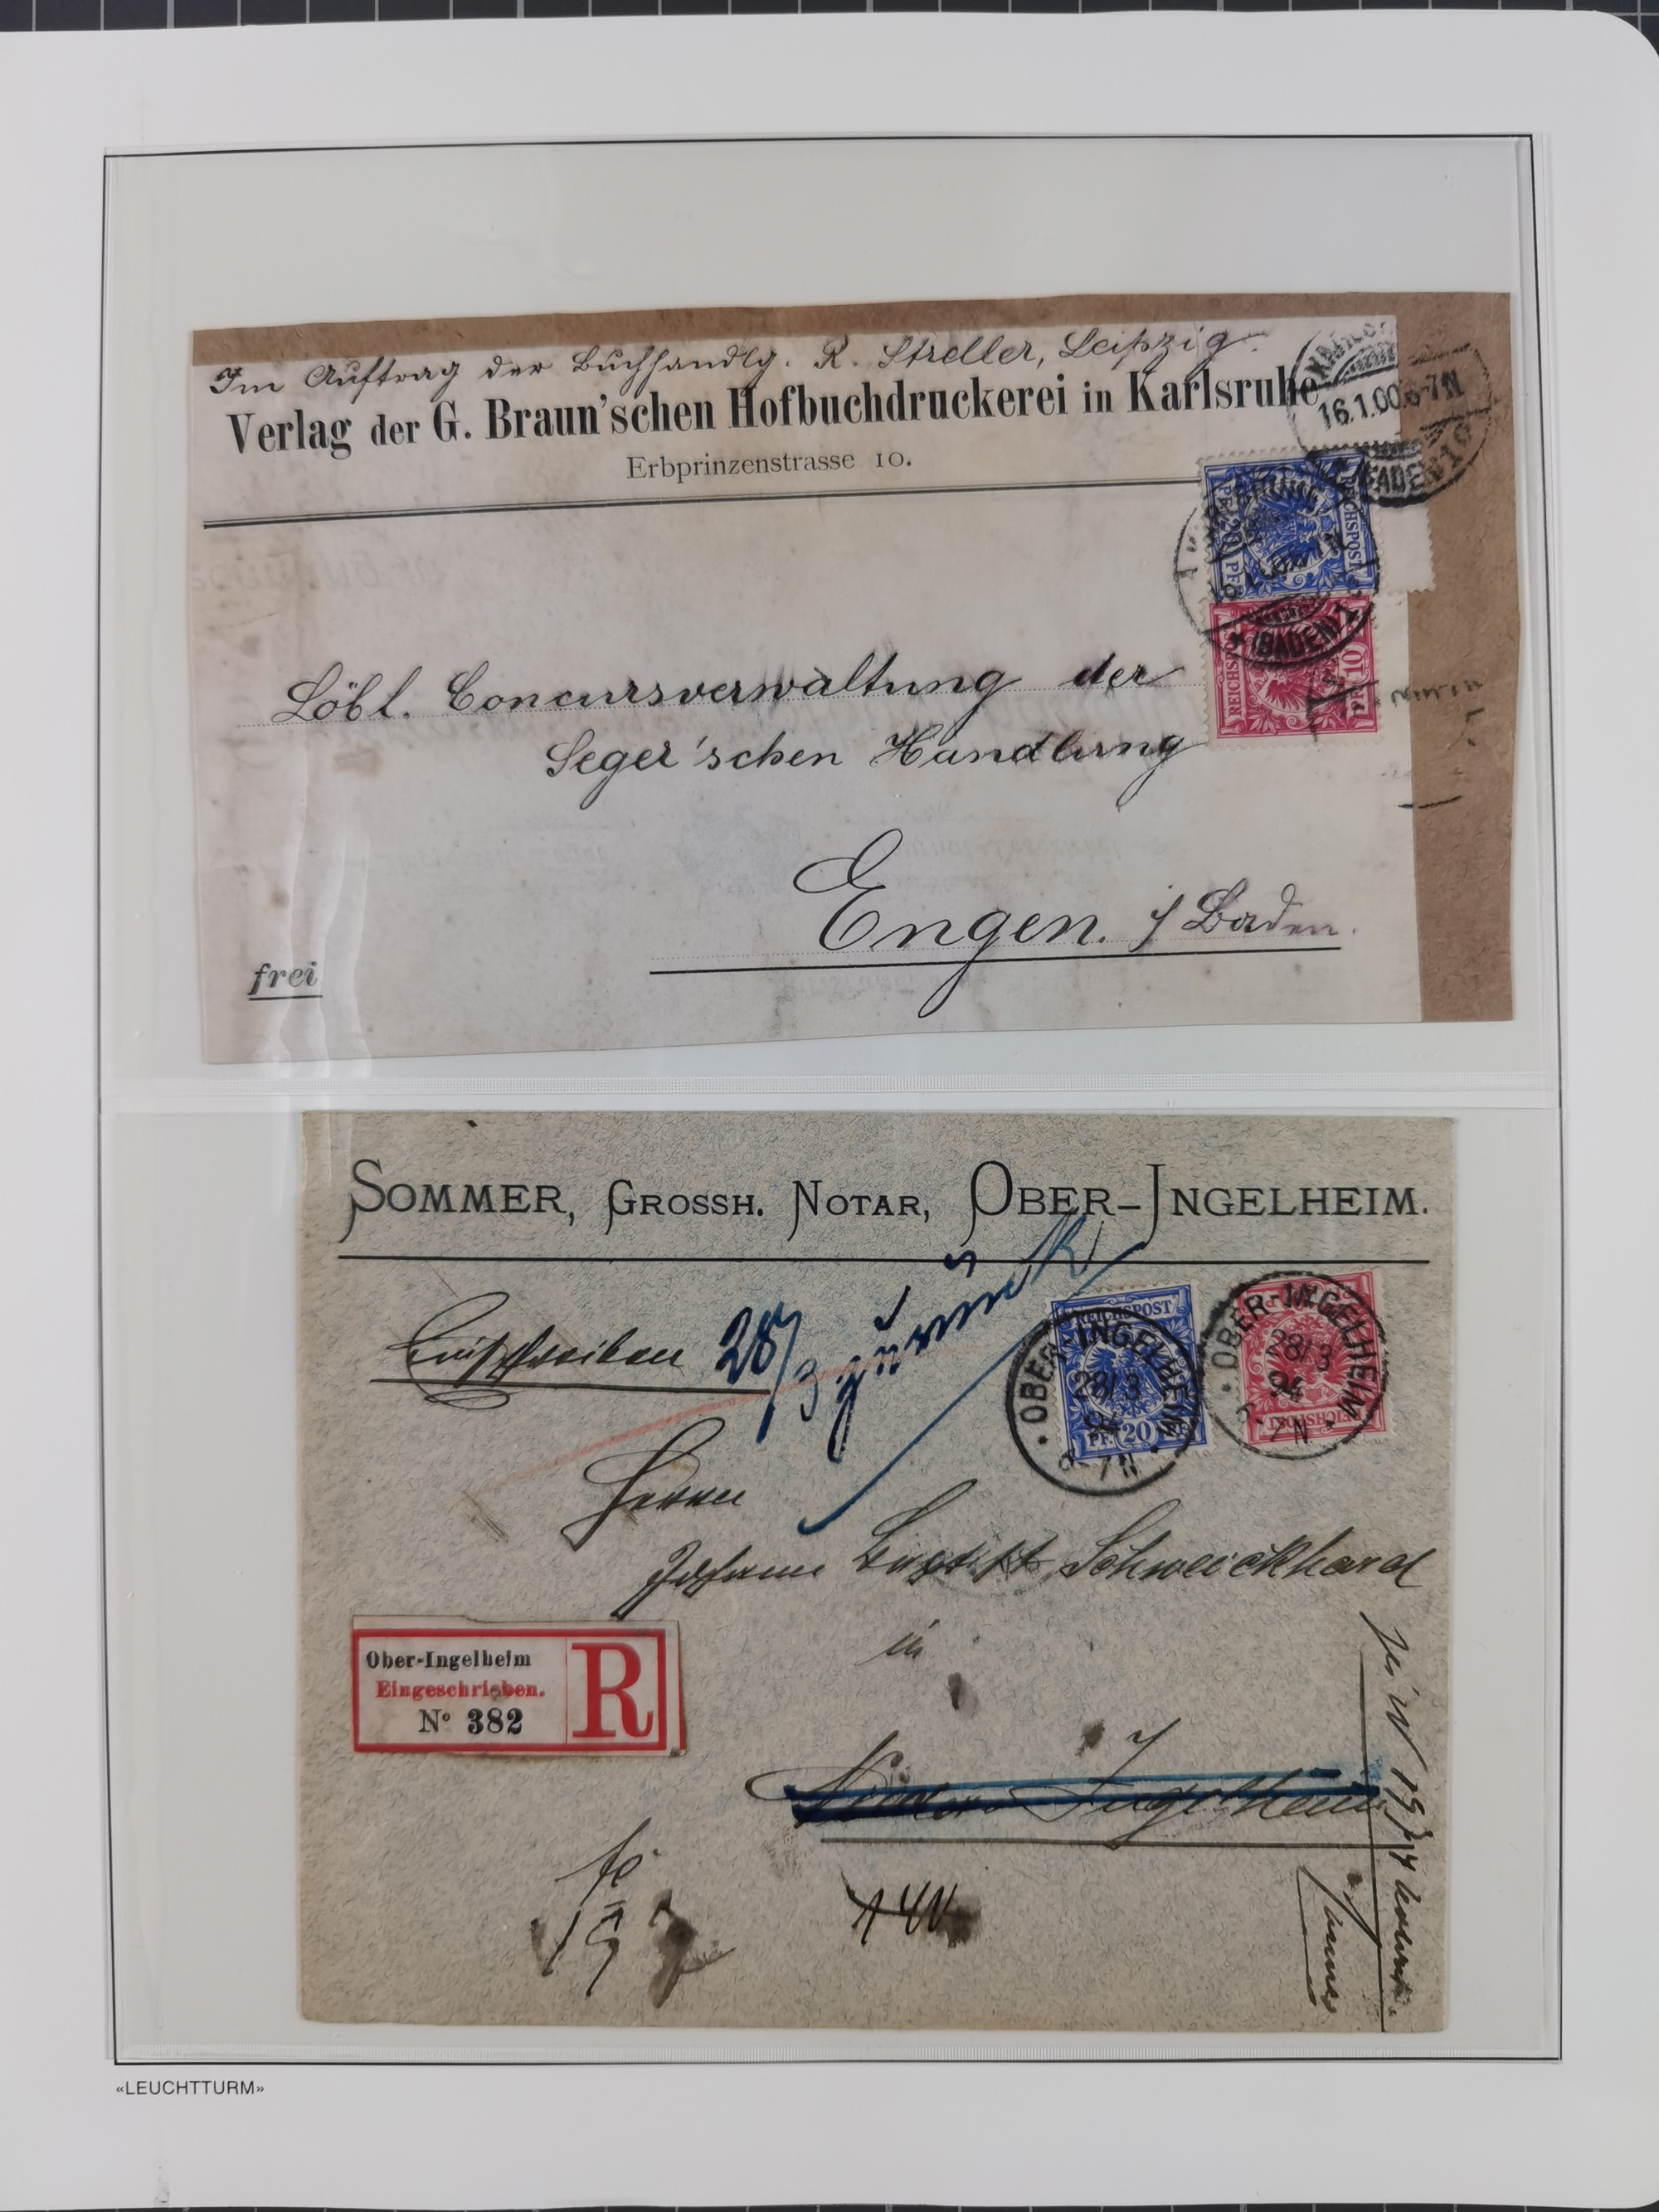 Im Auftrag der Buchhandlg. R. Streller, Leipzig.
Verlag der G. Braun'schen Hofbuchdruckerei in Karlsruhe
Erbprinzenstrasse 10.
16.1.00. 6-7N
(BADEN) 1
REICHSPOST
PF. 20 PF.
(BADEN) 1
REICHSPOST
10
Löbl. Concursverwaltung der
Seger'schen Handlung
Engen. i/Baden.
frei
SOMMER, GROSSH. NOTAR, OBER-INGELHEIM.
Einschreiben
28/3 zurück
REICHSPOST
PF. 20 PF.
OBER-INGELHEIM
28/3
94
6-7N
REICHSPOST
OBER-INGELHEIM
28/3
94
6-7N
Herrn
Johann Baptist Schweickhard
in
Ober-Ingelheim
Eingeschrieben.
Nº 382
R
Nieder-Ingelheim
«LEUCHTTURM»